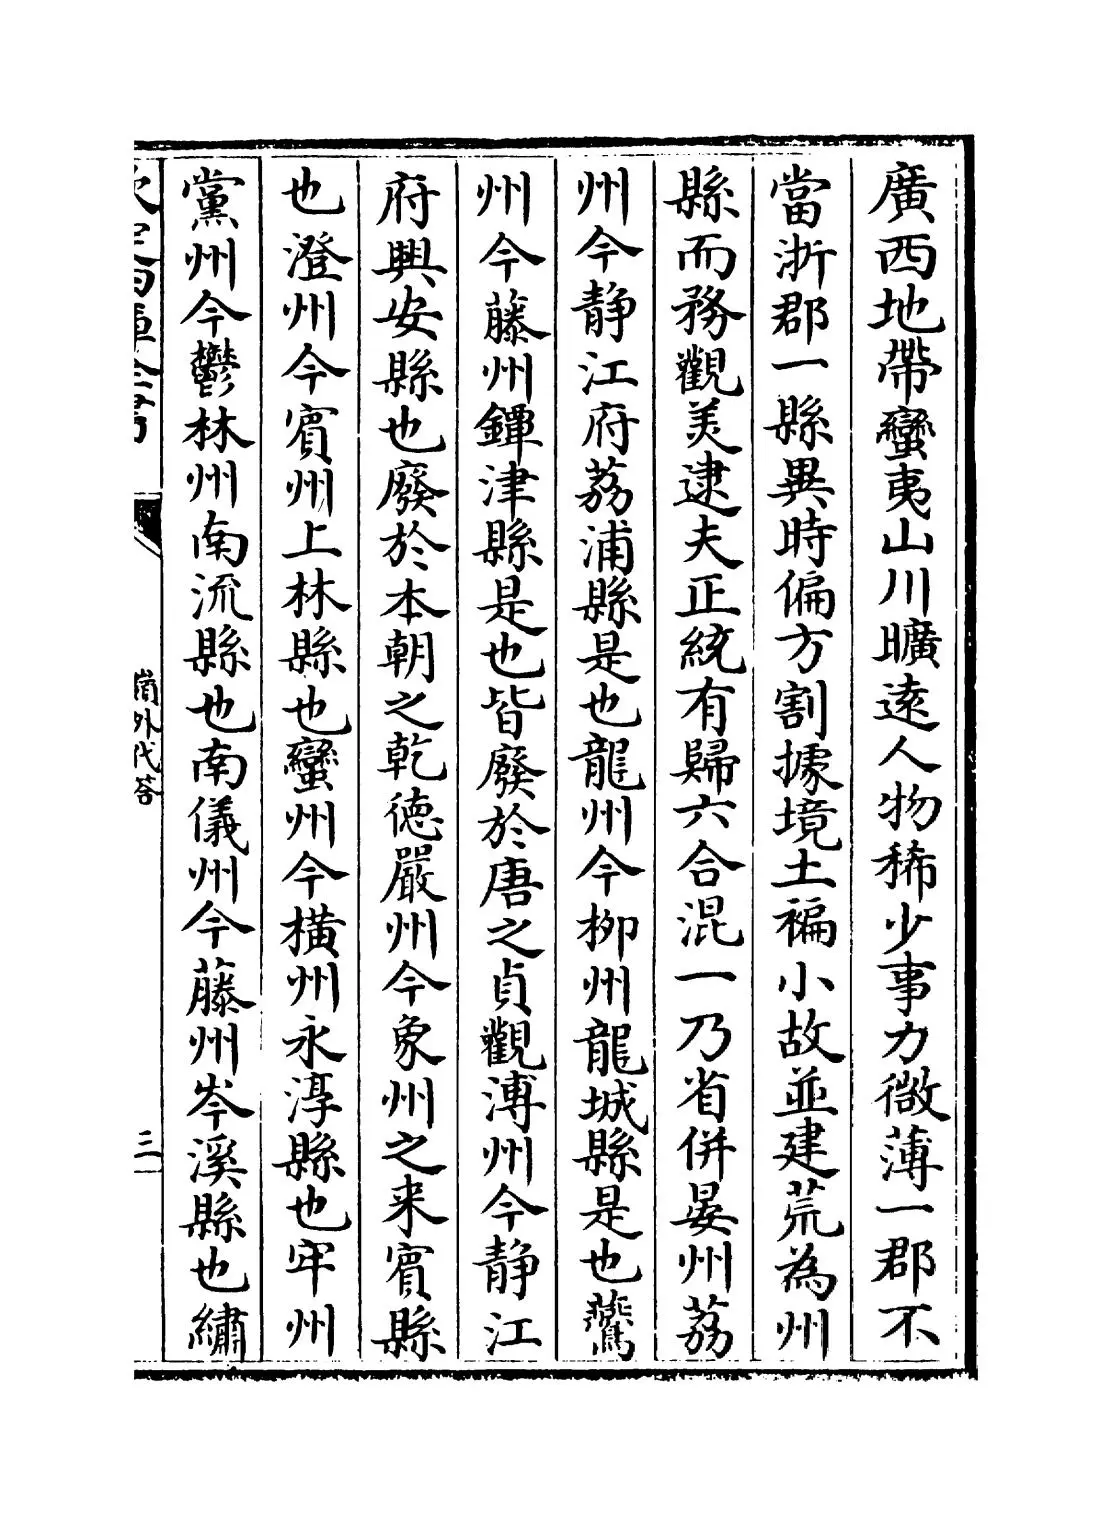 廣西地帶蠻夷山川曠逺人物稀少事力微薄一郡不
當浙郡一縣異時偏方割據境土褊小故並建荒為州
縣而務觀美逮夫正統有歸六合混一乃省併晏州荔
州今静江府荔浦縣是也龍州今柳州龍城縣是也鷰
州今藤州鐔津縣是也皆廢於唐之貞觀溥州今静江
府興安縣也廢於本朝之乾德嚴州今象州之来賓縣
也澄州今賓州上林縣也蠻州今横州永淳縣也牢州
黨州今鬱林州南流縣也南儀州今藤州岑溪縣也繡
欽定四庫全書
嶺外代答
三